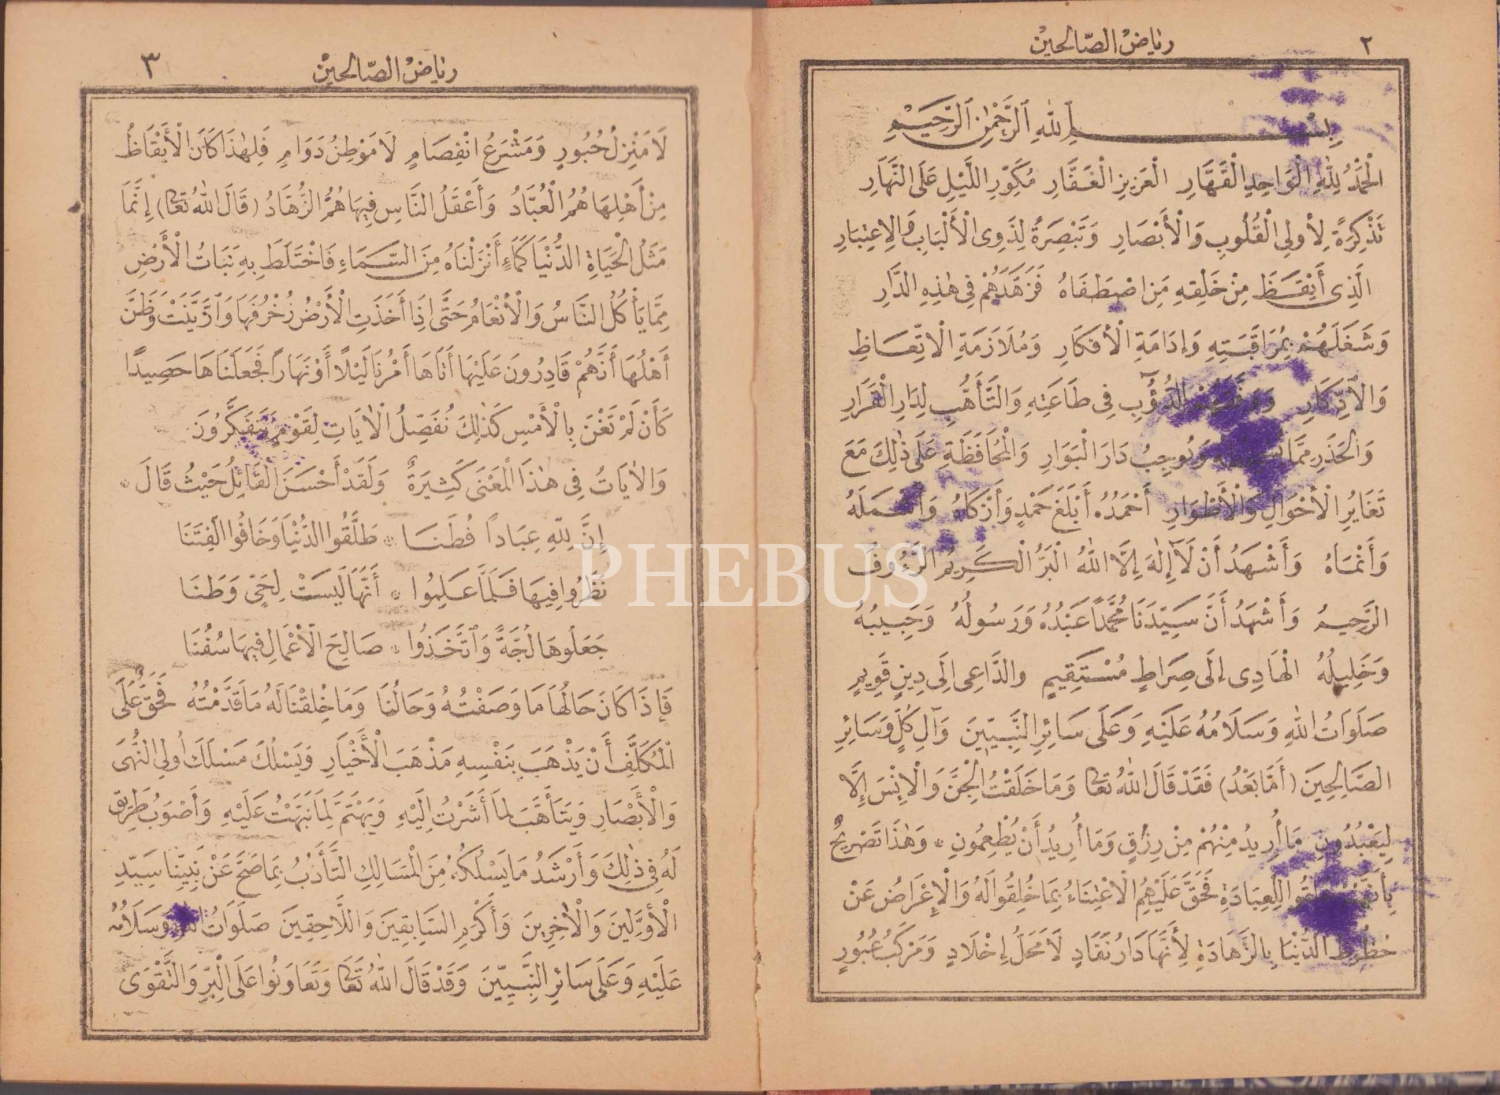 ٢
رياض الصّالحين
بِسْمِ اللهِ الرَّحْمٰنِ الرَّحِيْمِ
الْحَمْدُ لِلّٰهِ الْوَاحِدِ الْقَهَّارِ الْعَزِيزِ الْغَفَّارِ مُكَوِّرِ اللَّيْلِ عَلَى النَّهَارِ
تَذْكِرَةً لِأُولِي الْقُلُوبِ وَالْأَبْصَارِ وَتَبْصِرَةً لِذَوِي الْأَلْبَابِ وَالِاعْتِبَارِ
الَّذِي أَيْقَظَ مِنْ خَلْقِهِ مَنِ اصْطَفَاهُ فَزَهَّدَهُمْ فِي هٰذِهِ الدَّارِ
وَشَغَلَهُمْ بِمُرَاقَبَتِهِ وَإِدَامَةِ الْأَفْكَارِ وَمُلَازَمَةِ الِاتِّعَاظِ
وَالِادِّكَارِ الدُّؤُبِ فِي طَاعَتِهِ وَالتَّأَهُّبِ لِدَارِ الْقَرَارِ
وَالْحَذَرِ مِمَّا وَيُوجِبُ دَارَ الْبَوَارِ وَالْمُحَافَظَةِ عَلَى ذٰلِكَ مَعَ
تَغَايُرِ الْأَحْوَالِ وَالْأَطْوَارِ أَحْمَدُهُ أَبْلَغَ حَمْدٍ وَأَزْكَاهُ وَأَشْمَلَهُ
وَأَنْمَاهُ وَأَشْهَدُ أَنْ لَا إِلٰهَ إِلَّا اللهُ الْبَرُّ الْكَرِيمُ الرَّءُوفُ
الرَّحِيمُ وَأَشْهَدُ أَنَّ سَيِّدَنَا مُحَمَّدًا عَبْدُهُ وَرَسُولُهُ وَحَبِيبُهُ
وَخَلِيلُهُ الْهَادِي إِلَى صِرَاطٍ مُسْتَقِيمٍ وَالدَّاعِي إِلَى دِينٍ قَوِيمٍ
صَلَوَاتُ اللهِ وَسَلَامُهُ عَلَيْهِ وَعَلَى سَائِرِ النَّبِيِّينَ وَآلِ كُلٍّ وَسَائِرِ
الصَّالِحِينَ (أَمَّا بَعْدُ) فَقَدْ قَالَ اللهُ تَعَالَى وَمَا خَلَقْتُ الْجِنَّ وَالْإِنْسَ إِلَّا
لِيَعْبُدُونِ مَا أُرِيدُ مِنْهُمْ مِنْ رِزْقٍ وَمَا أُرِيدُ أَنْ يُطْعِمُونِ * وَهٰذَا تَصْرِيحٌ
بِأَنَّهُمْ خُلِقُوا لِلْعِبَادَةِ فَحَقَّ عَلَيْهِمُ الِاعْتِنَاءُ بِمَا خُلِقُوا لَهُ وَالْإِعْرَاضُ عَنْ
حُظُوظِ الدُّنْيَا بِالزَّهَادَةِ لِأَنَّهَا دَارُ نَفَادٍ لَا مَحَلُّ إِخْلَادٍ وَمَرْكَبُ عُبُورٍ
رياض الصّالحين
٣
لَا مَنْزِلُ حُبُورٍ وَمَشْرَعُ انْفِصَامٍ لَا مَوْطِنُ دَوَامٍ فَلِهٰذَا كَانَ الْأَيْقَاظُ
مِنْ أَهْلِهَا هُمُ الْعُبَّادُ وَأَعْقَلُ النَّاسِ فِيهَا هُمُ الزُّهَّادُ (قَالَ اللهُ تَعَالَى) إِنَّمَا
مَثَلُ الْحَيَاةِ الدُّنْيَا كَمَاءٍ أَنْزَلْنَاهُ مِنَ السَّمَاءِ فَاخْتَلَطَ بِهِ نَبَاتُ الْأَرْضِ
مِمَّا يَأْكُلُ النَّاسُ وَالْأَنْعَامُ حَتَّى إِذَا أَخَذَتِ الْأَرْضُ زُخْرُفَهَا وَازَّيَّنَتْ وَظَنَّ
أَهْلُهَا أَنَّهُمْ قَادِرُونَ عَلَيْهَا أَتَاهَا أَمْرُنَا لَيْلًا أَوْ نَهَارًا فَجَعَلْنَاهَا حَصِيدًا
كَأَنْ لَمْ تَغْنَ بِالْأَمْسِ كَذٰلِكَ نُفَصِّلُ الْاٰيَاتِ لِقَوْمٍ يَتَفَكَّرُونَ
وَالْاٰيَاتُ فِي هٰذَا الْمَعْنَى كَثِيرَةٌ وَلَقَدْ أَحْسَنَ الْقَائِلُ حَيْثُ قَالَ *
إِنَّ لِلّٰهِ عِبَادًا فُطَنَا * طَلَّقُوا الدُّنْيَا وَخَافُوا الْفِتَنَا
نَظَرُوا فِيهَا فَلَمَّا عَلِمُوا * أَنَّهَا لَيْسَتْ لِحَيٍّ وَطَنَا
جَعَلُوهَا لُجَّةً وَاتَّخَذُوا * صَالِحَ الْأَعْمَالِ فِيهَا سُفُنَا
فَإِذَا كَانَ حَالُهَا مَا وَصَفْتُهُ وَحَالُنَا وَمَا خُلِقْنَا لَهُ مَا قَدَّمْتُهُ فَحَقٌّ عَلَى
الْمُكَلَّفِ أَنْ يَذْهَبَ بِنَفْسِهِ مَذْهَبَ الْأَخْيَارِ وَيَسْلُكَ مَسْلَكَ أُولِي النُّهَى
وَالْأَبْصَارِ وَيَتَأَهَّبَ لِمَا أَشَرْتُ إِلَيْهِ وَيَهْتَمَّ لِمَا نَبَّهْتُ عَلَيْهِ وَأَصْوَبُ طَرِيقٍ
لَهُ فِي ذٰلِكَ وَأَرْشَدُ مَا يَسْلُكُهُ مِنَ الْمَسَالِكِ التَّأَدُّبُ بِمَا صَحَّ عَنْ نَبِيِّنَا سَيِّدِ
الْأَوَّلِينَ وَالْاٰخِرِينَ وَأَكْرَمِ السَّابِقِينَ وَاللَّاحِقِينَ صَلَوَاتُ اللهِ وَسَلَامُهُ
عَلَيْهِ وَعَلَى سَائِرِ النَّبِيِّينَ وَقَدْ قَالَ اللهُ تَعَالَى وَتَعَاوَنُوا عَلَى الْبِرِّ وَالتَّقْوَى
PHEBUS